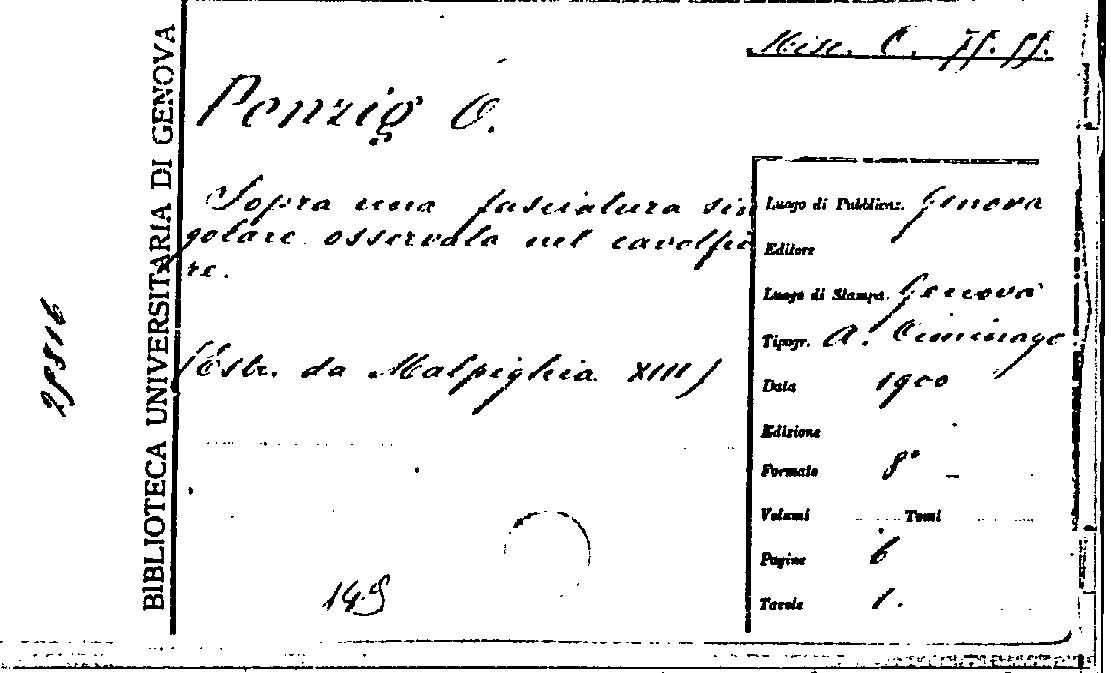 Misc. C. ff. ff.
Penzig O.
Sopra una fasciatura sin
golare osservata nel cavolfio
re.
(Estr. da Malpighia XIII)
149
BIBLIOTECA UNIVERSITARIA DI GENOVA
Luogo di Pubblicaz. Genova
Editore
Luogo di Stampa. Genova
Tipogr. A. Ciminago
Data 1900
Edizione
Formato 8°
Volumi Tomi
Pagine 6
Tavole 1.